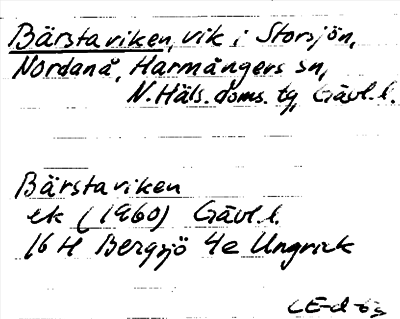 Bärstaviken, vik i Storsjön,
Nordanå, Harmångers sn,
N. Häls. doms. tg, Gävl. l.
Bärstaviken
ek (1960) Gävl. l.
16 H Bergsjö 4e Ungrick